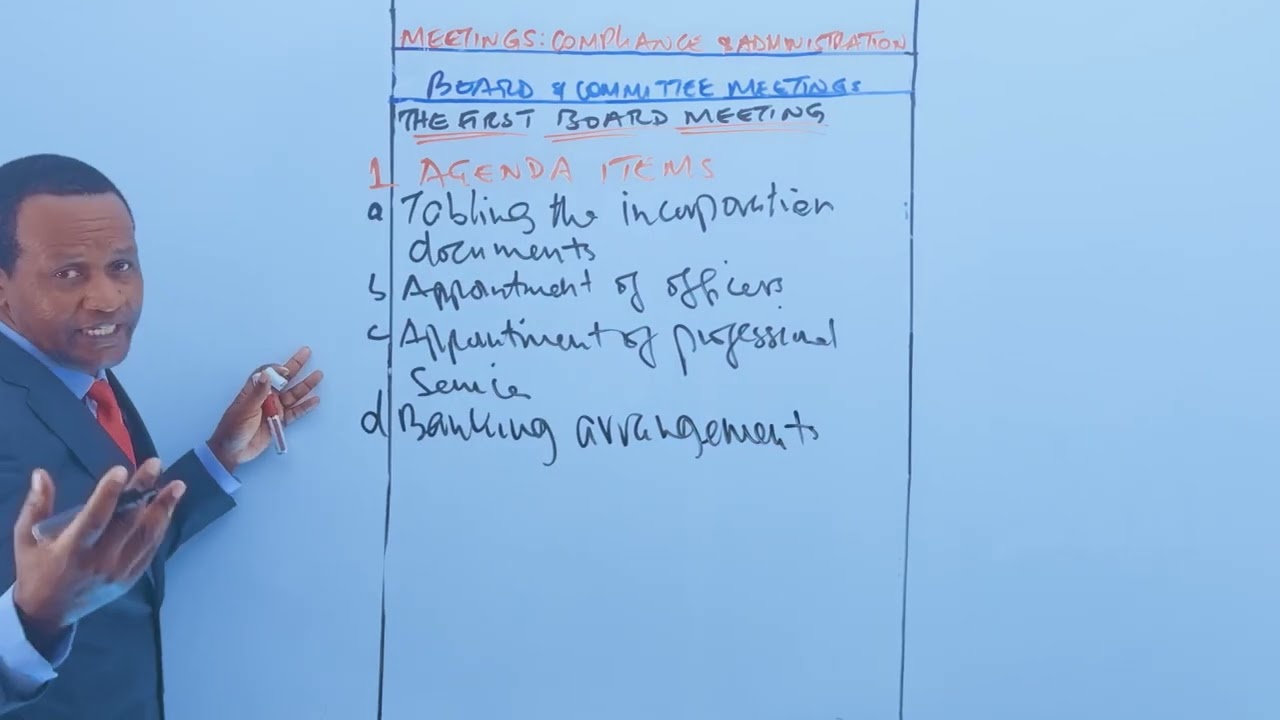 MEETINGS: COMPLIANCE & ADMINISTRATION
BOARD & COMMITTEE MEETINGS
THE FIRST BOARD MEETING
1 AGENDA ITEMS
a Tabling the incorporation
documents
b Appointment of officers
c Appointment of professional
Service
d Banking arrangements